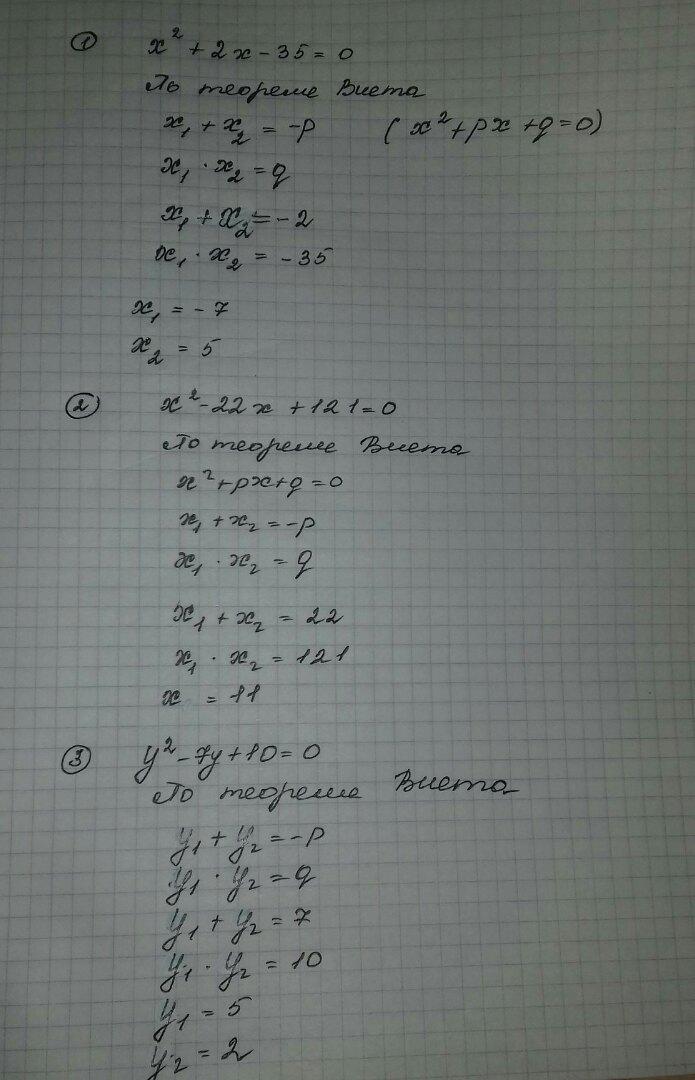 ① x² + 2x - 35 = 0
По теореме Виета
x₁ + x₂ = -p (x² + px + q = 0)
x₁ · x₂ = q
x₁ + x₂ = -2
x₁ · x₂ = -35
x₁ = -7
x₂ = 5
② x² - 22x + 121 = 0
По теореме Виета
x² + px + q = 0
x₁ + x₂ = -p
x₁ · x₂ = q
x₁ + x₂ = 22
x₁ · x₂ = 121
x = 11
③ y² - 7y + 10 = 0
По теореме Виета
y₁ + y₂ = -p
y₁ · y₂ = q
y₁ + y₂ = 7
y₁ · y₂ = 10
y₁ = 5
y₂ = 2